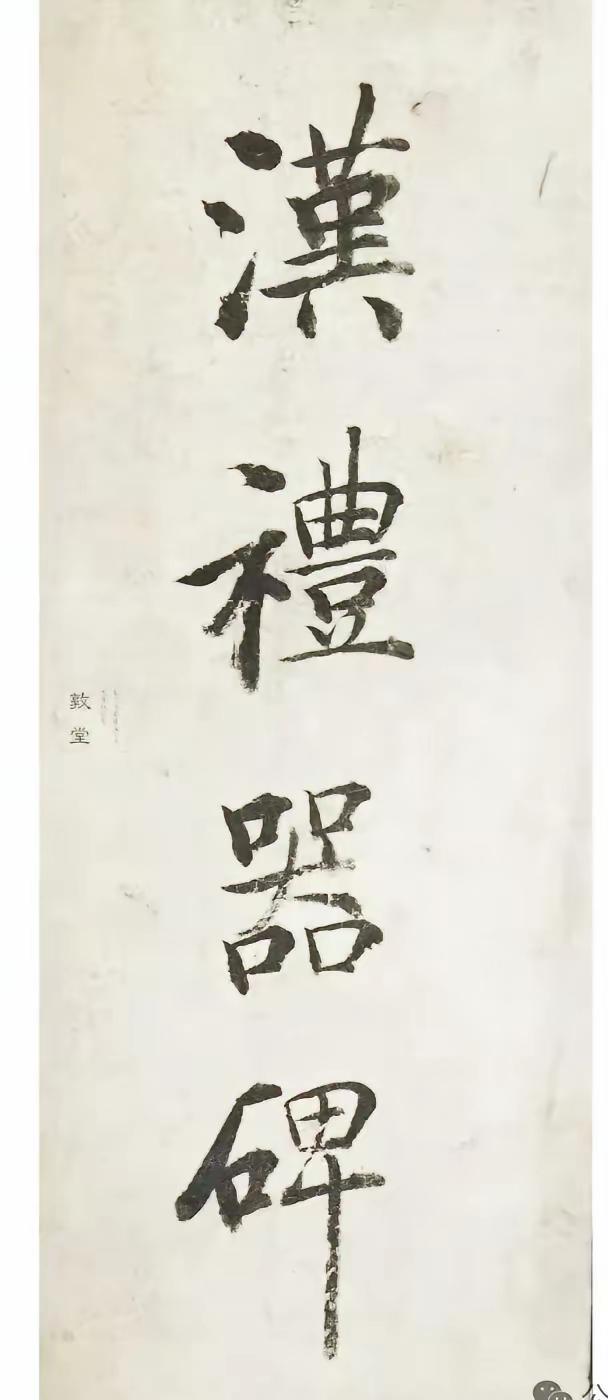 漢禮器碑
敦堂
公